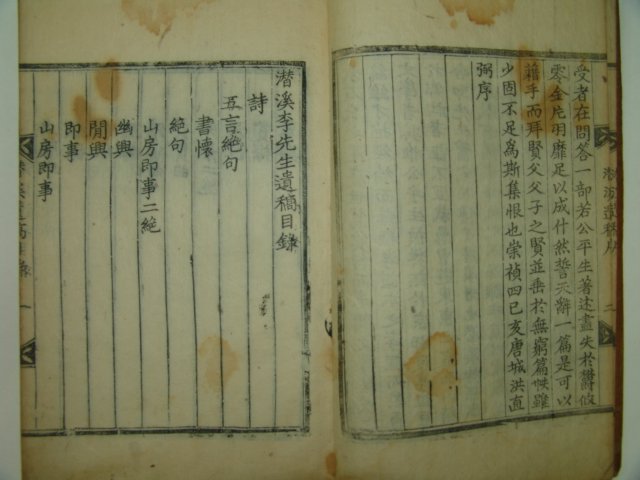 受者在問答一部若公平生著述盡失於鬱攸
零金片羽靡足以成什然誓天辭一篇是可以
藉手而拜賢父父子之賢並垂於無窮篇帙雖
少固不足爲斯集恨也崇禎四己亥唐城洪直
弼序
潛溪遺稿序
二
潛溪李先生遺稿目錄
詩
五言絶句
書懷
絶句
山房即事二絶
幽興
閒興
即事
山房即事
潛溪遺稿目錄
一